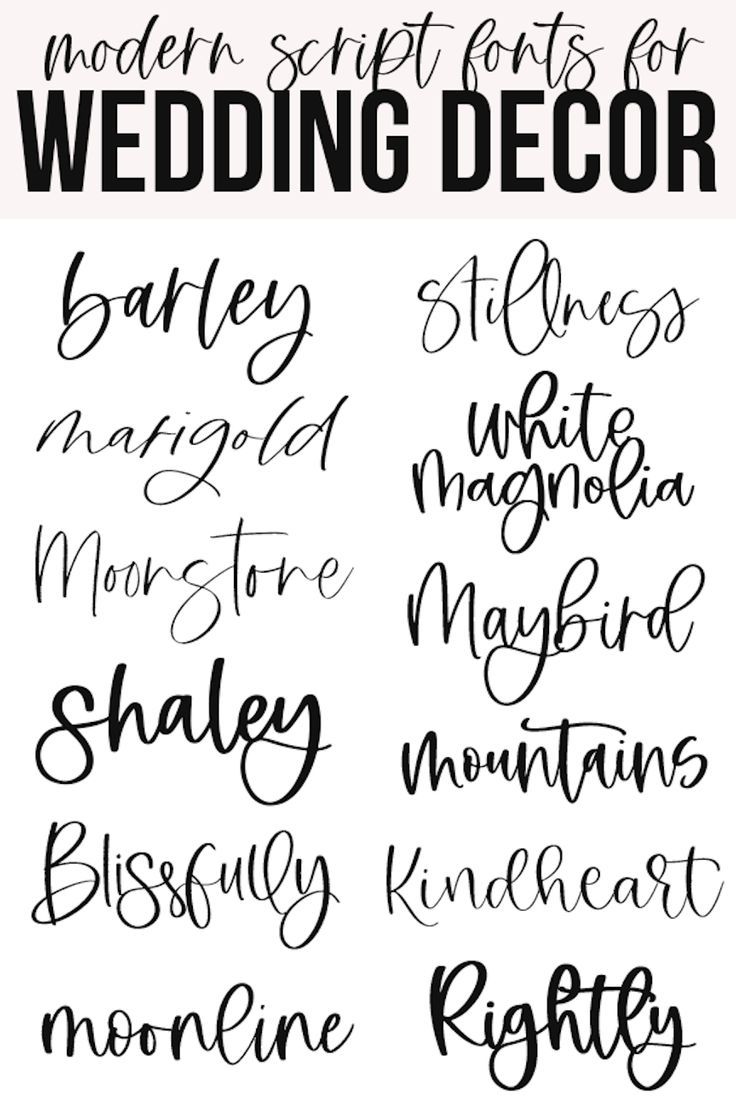 modern script fonts for
WEDDING DECOR
barley
marigold
Moonstone
shaley
Blissfully
moonline
stillness
white
magnolia
Maybird
mountains
Kindheart
Rightly